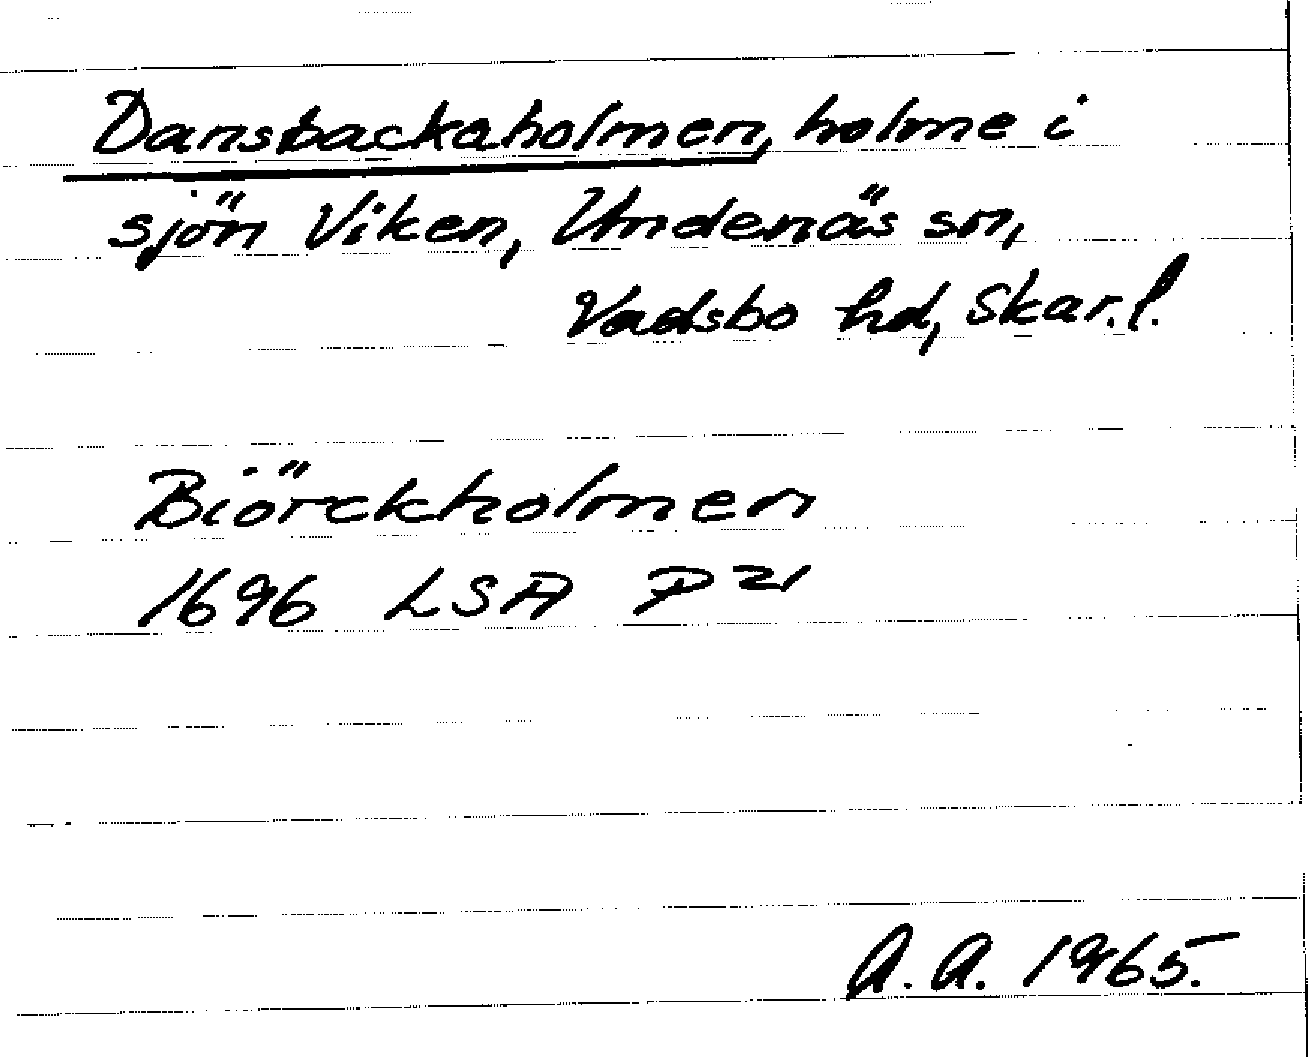 Dansbackaholmen, holme i
sjön Viken, Undenäs sn,
Vadsbo hd, Skar.l.
Biörckholmen
1696 LSA P 21
A.A. 1965.